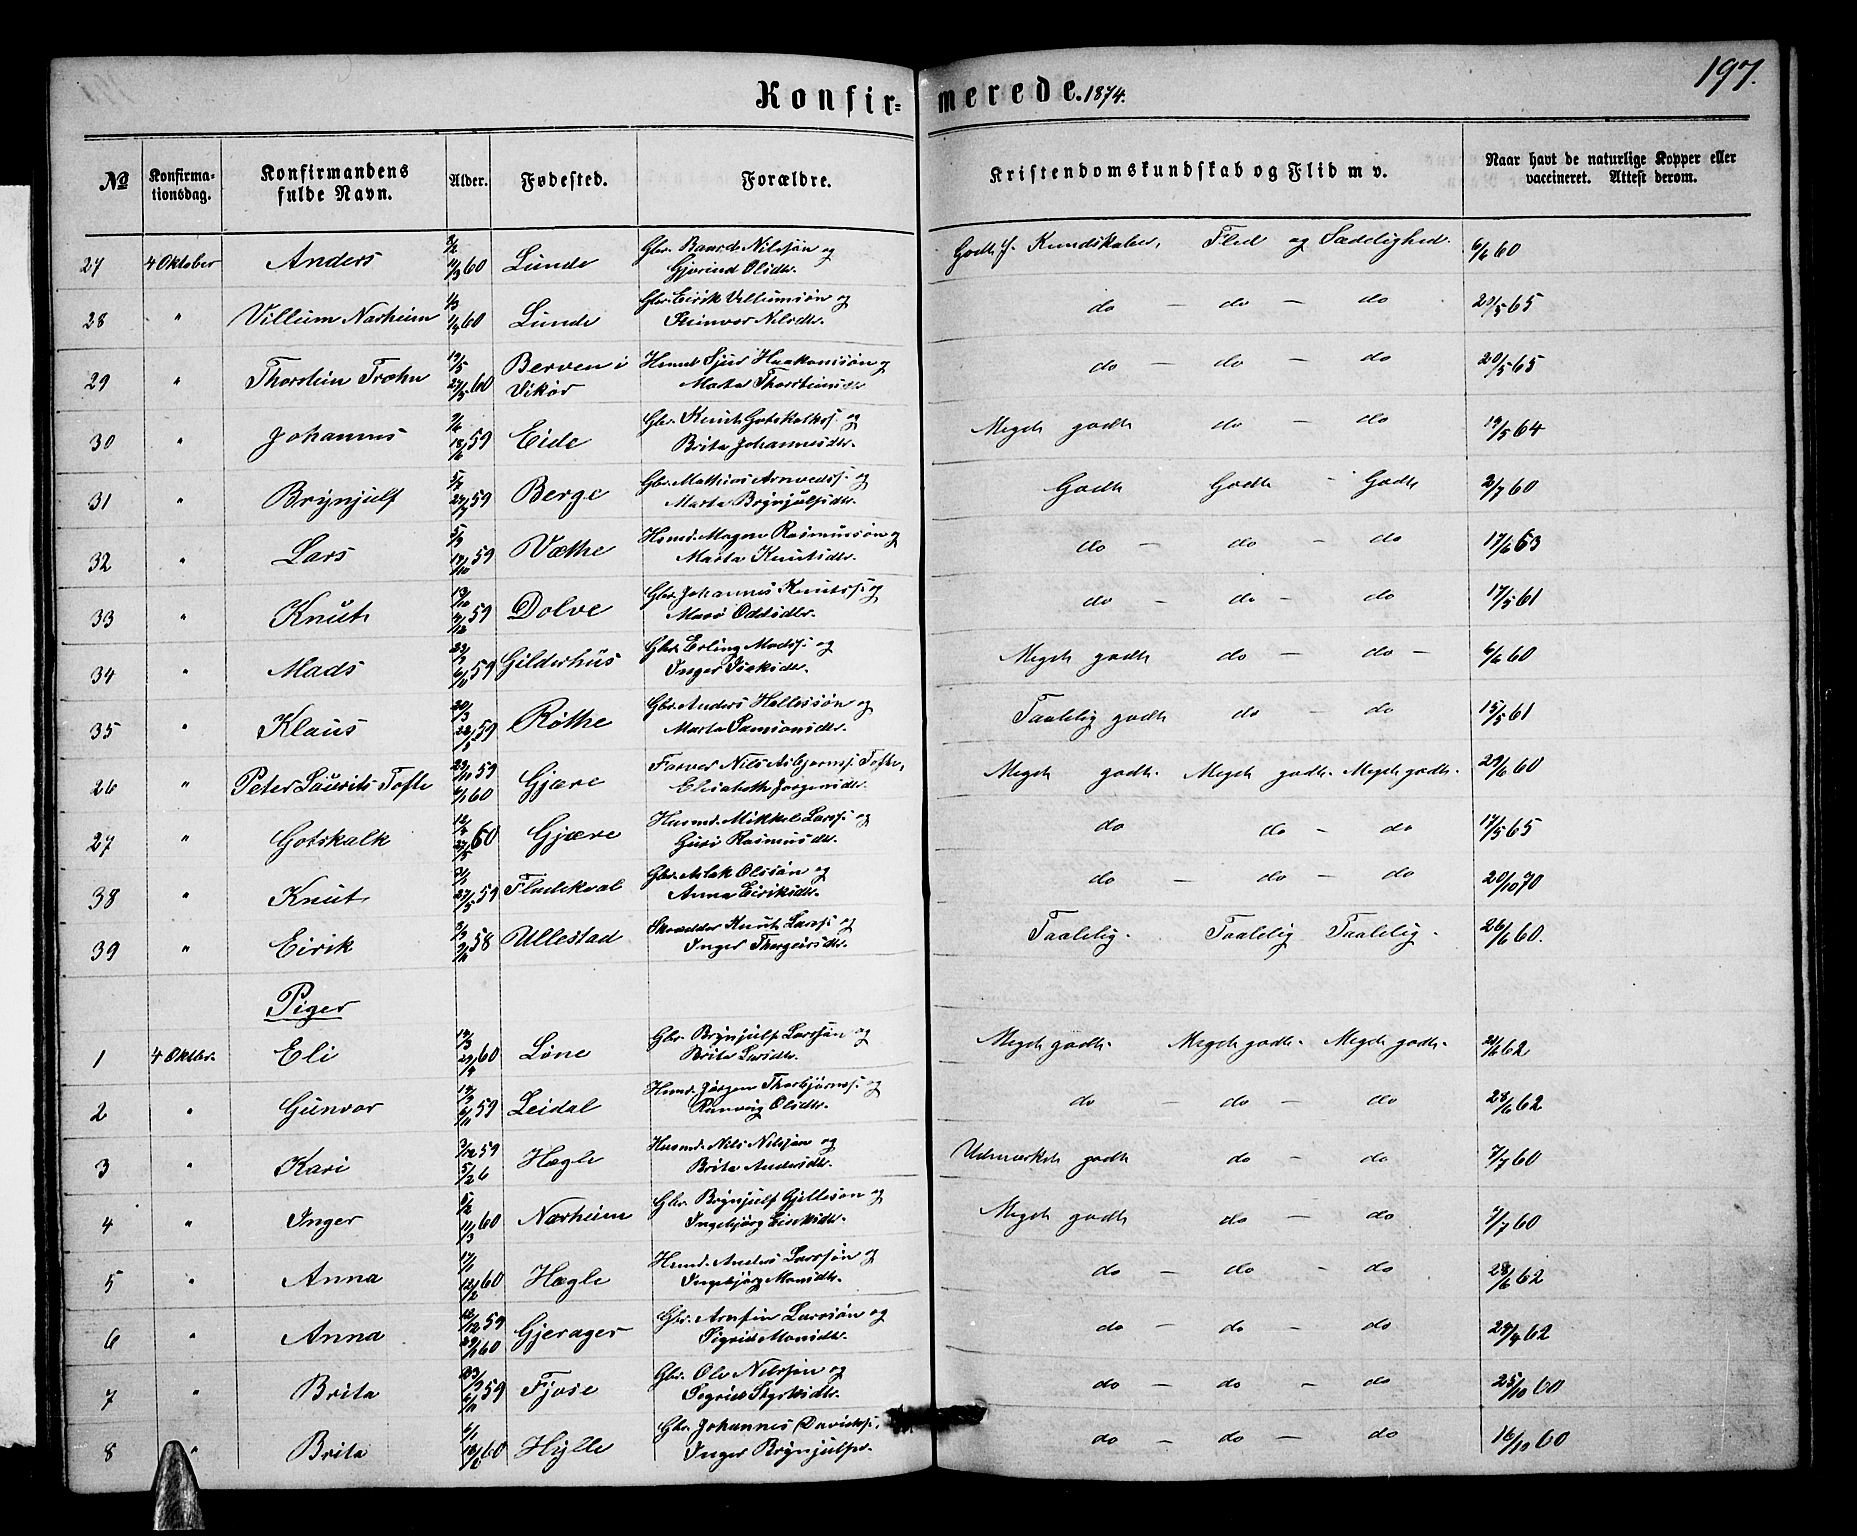 Konfir= merede. 1874. 197.
No Konfirma-tionsdag. Konfirmandens fulde Navn. Alder. Fødested. Forældre. Kristendomskundskab og Flid m v. Naar havt de naturlige Kopper eller vaccineret. Attest derom.
27 4 Oktober Anders 60 Lunde Gbr. Baard Nilssøn og Gjørind Olsdtr. Godt f. Kundskaber, Flid og Sædelighed. 6/6 60
28 " Villum Nærheim 60 Lunde Gbr. Eirik Villumsøn og Guinvor Nilsdtr. do – do – do 20/5 65
29 " Thorstein Træhn 19/5 27/5 60 Berven i Vikør Husmd Sjur Haakonssøn og Marta Thorsteinsdtr do – do – do 20/5 65
30 " Johannes 59 Eide Gbr. Knut Gotskalks. og Brita Johannesdtr. Meget godt do – do 19/5 64
31 " Brynjulf 59 Berge Gbr. Mathias Arnveds. og Marta Brynjulfsdtr. Godt Godt - Godt 2/7 60
32 " Lars 59 Væthe Husmd. Mogens Rasmussøn og Marta Knutsdtr. do – do – do 17/6 63
33 " Knut 59 Dolve Gbr. Johannes Knutss. og Mari Oddsdtr. do – do – do 17/5 61
34 " Mads 59 Gilderhus Gbr. Erling Madss. og Inger Isaksdtr. Meget godt do – do – 6/6 60
35 " Klaus 20/3 22/5 59 Røthe Gbr. Anders Hellesøn og Marta Samsonsdtr. Taalelig godt do – do 15/5 61
26 " Peter Laurits Tofte 59 60 Gjære Farver Nils Asbjørns. Tofte, Elisabeth Jørgensdtr. Meget godt. Meget godt. Meget godt. 29/6 60
27 " Gotskalk 60 Gjære Husmd. Mikkel Larss. og Guri Rasmusdtr. do do – do 17/5 65
38 " Knut 59 Fladekval Gbr. Aslak Olssøn og Anna Eiriksdtr. do – do – do 20/10 70
39 " Eirik 58 Ullestad Skrædder Knut Larss. og Inger Thorgeirsdtr. Taalelig. Taalelig Taalelig. 26/6 60.
Piger
1 4 Oktbr. Eli 60 Lòne Gbr. Brynjulf Larssøn og Brita Larsdtr. Meget godt. Meget godt. Meget godt. 62
2 " Gunvor 59 Leidal Husmd. Jørgen Thorbjørnss. og Ranveig Olsdtr. do – do – do 28/6 62
3 " Kari 3/12 59 5/2 6 Hægle Husmd. Nils Nilssøn og Brita Andersdtr. Udmærket godt do – do 7/7 60
4 " Inger 5/2 11/3 60 Nærheim Gbr. Brynjulf Gjellesøn og Ingebjørg Eiriksdtr. Meget godt do – do 7/7 60
5 " Anna 17/1 12/2 60 Hægle Husmd. Anders Larssøn og Ingebjørg Monsdtr. do – do – do 28/6 62
6 " Anna 12/12 59 29/1 60 Gjerager Gbr. Arnfin Larssøn og Sigrid Monsdtr. do – do – do 62
7 " Brita 59 Fjose Gbr. Ole Nilssøn og Sigrid Styrksdtr. do – do – do 25/10 60
8 " Brita 60 Hylle Gbr. Johannes Davidss, Inger Brynjulfsr. do – do – do 16/10 60